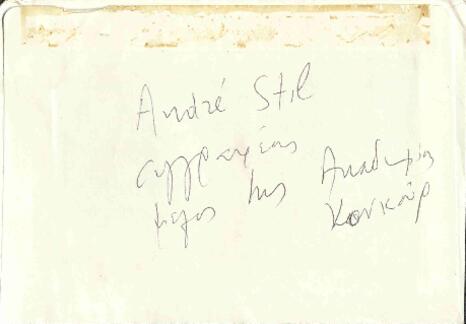 André Stil
συγγραφέας
μέλος της Ακαδημίας
Κονκούρ